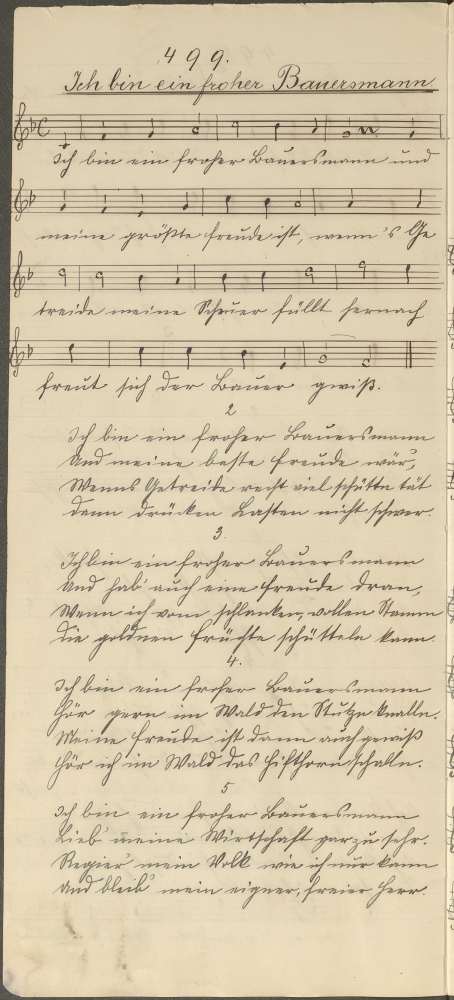 499.
Ich bin ein froher Bauersmann
Ich bin ein froher Bauersmann und
meine größte Freude ist, wenn's Ge
treide meine Scheuer füllt hernach
freut sich der Bauer gewiß.
2
Ich bin ein froher Bauersmann
Und meine beste Freude wär,
Wenns Getreide recht viel schütte tät
denn drücken Lasten nicht schwer.
3.
Ich bin ein froher Bauersmann
Und hab' auch eine Freude dran,
Wenn ich vom schlanken, vollen Stamm
die goldnen Früchte schütteln kann.
4.
Ich bin ein froher Bauersmann
Hör gern im Wald den Stutzn knalln.
Meine Freude ist dann auch gewiß
Hör ich im Wald das Hifthorn schalln.
5
Ich bin ein froher Bauersmann
Lieb' meine Wirtschaft gar zu sehr.
Regier' mein Volk wie ich nur kann
Und bleib' mein eigner, freier Herr.